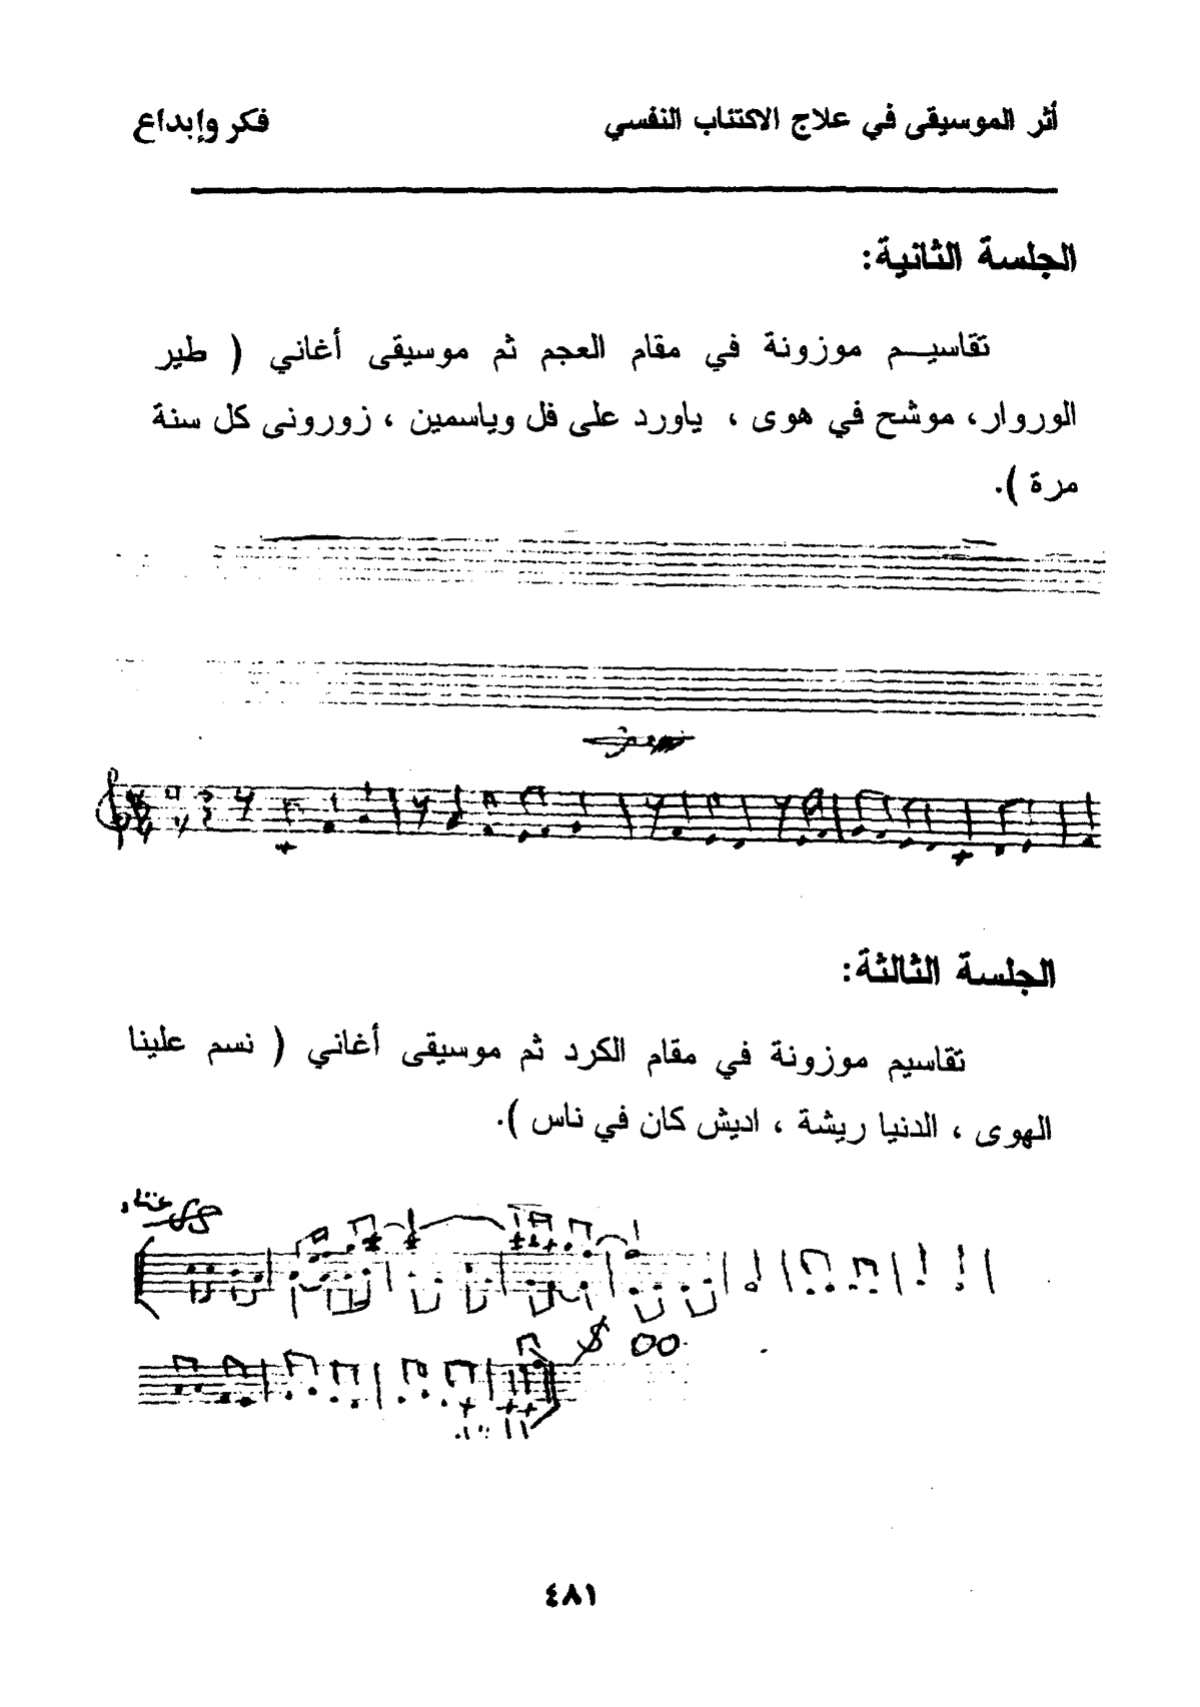 أثر الموسيقى في علاج الاكتئاب النفسي فكر وإبداع
الجلسة الثانية:
تقاسيــم موزونة في مقام العجم ثم موسيقى أغاني ( طير
الوروار، موشح في هوى ، ياورد على فل وياسمين ، زورونى كل سنة
مرة ).
الجلسة الثالثة:
تقاسيم موزونة في مقام الكرد ثم موسيقى أغاني ( نسم علينا
الهوى ، الدنيا ريشة ، اديش كان في ناس ).
٤٨١